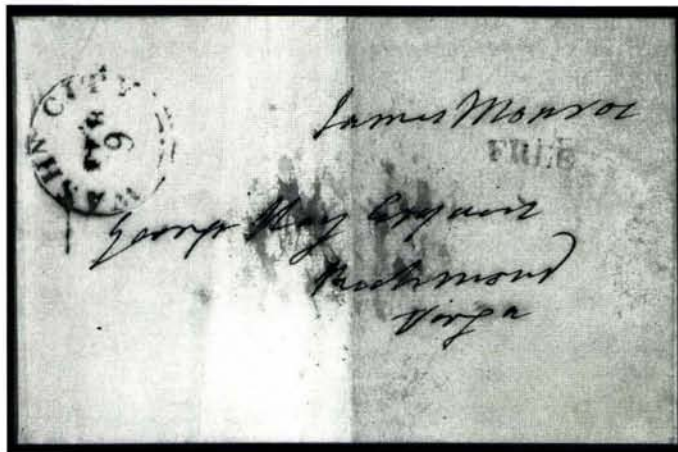 WASHN CITY
6
James Monroe
FREE
George Hay Esquire
Richmond
Virga